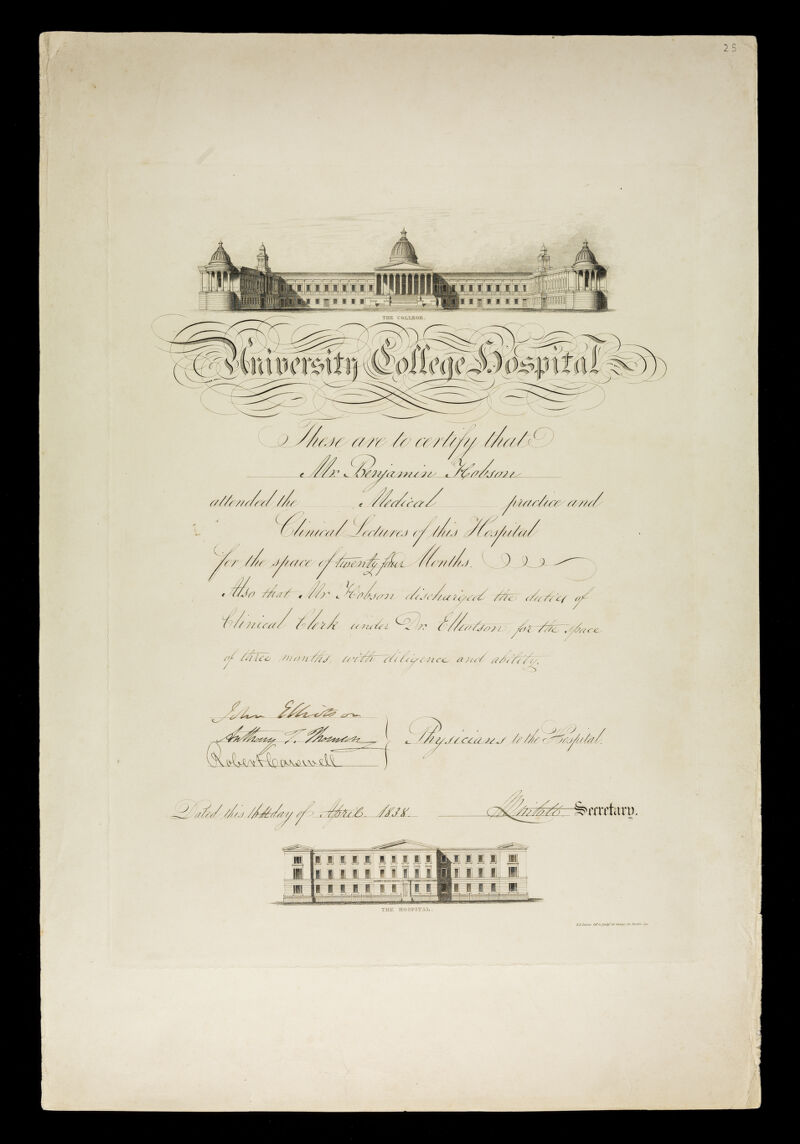 25
THE COLLEGE.
University College Hospital
These are to certify that
Mr. Benjamin Hobson
attended the Medical practice and
Clinical Lectures of this Hospital
for the space of twenty four Months.
Also that Mr Hobson discharged the duties of
Clinical Clerk under Dr. Elliotson for the space
of three months, with diligence and ability.
John Elliotson
Anthony T. Thomson
Robert Carswell
Physicians to the Hospital.
Dated this 16th day of April 1838.
Secretary.
THE HOSPITAL.